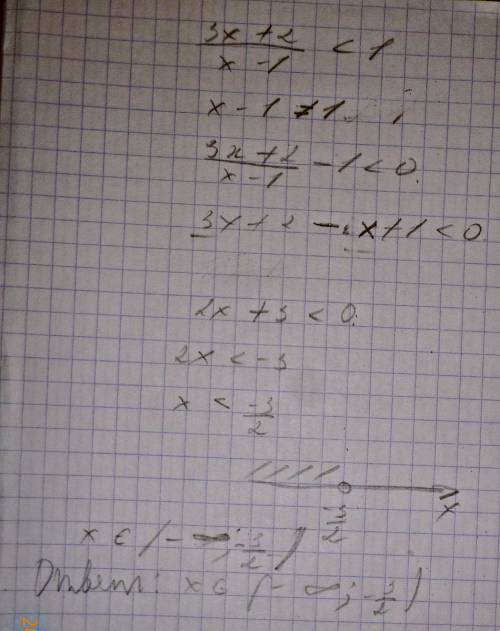 (3x+2)/(x-1) < 1
x - 1 ≠ 1
(3x+2)/(x-1) - 1 < 0.
3x + 2 - x + 1 < 0
2x + 3 < 0.
2x < -3
x < -3/2
-3/2 x
x ∈ (-∞; -3/2)
Ответ: x ∈ (-∞; -3/2)